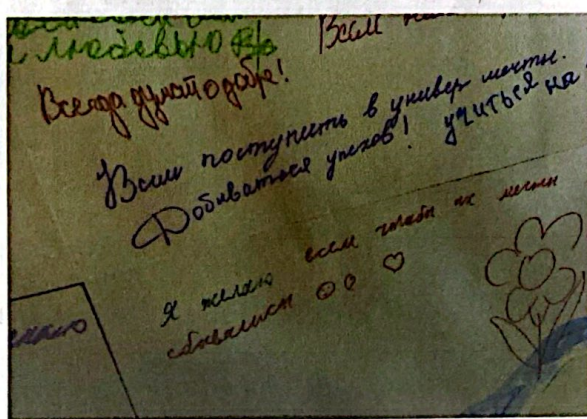 с любовью
Всем
Всегда думать о добре!
Всем поступить в универ мечты.
Добиваться успехов! учиться на
Я желаю всем чтобы их мечты
сбывались